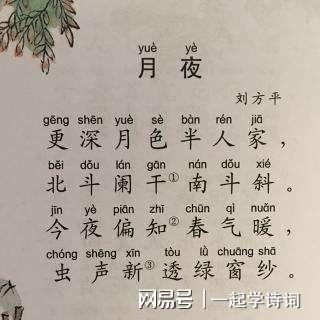 yuè yè
月夜
刘方平
gēng shēn yuè sè bàn rén jiā
更深月色半人家，
běi dǒu lán gān nán dǒu xié
北斗阑干①南斗斜。
jīn yè piān zhī chūn qì nuǎn
今夜偏知②春气暖，
chóng shēng xīn tòu lǜ chuāng shā
虫声新③透绿窗纱。
网易号 | 一起学诗词